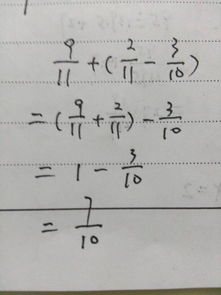 9/11 + (2/11 - 3/10)
= (9/11 + 2/11) - 3/10
= 1 - 3/10
= 7/10